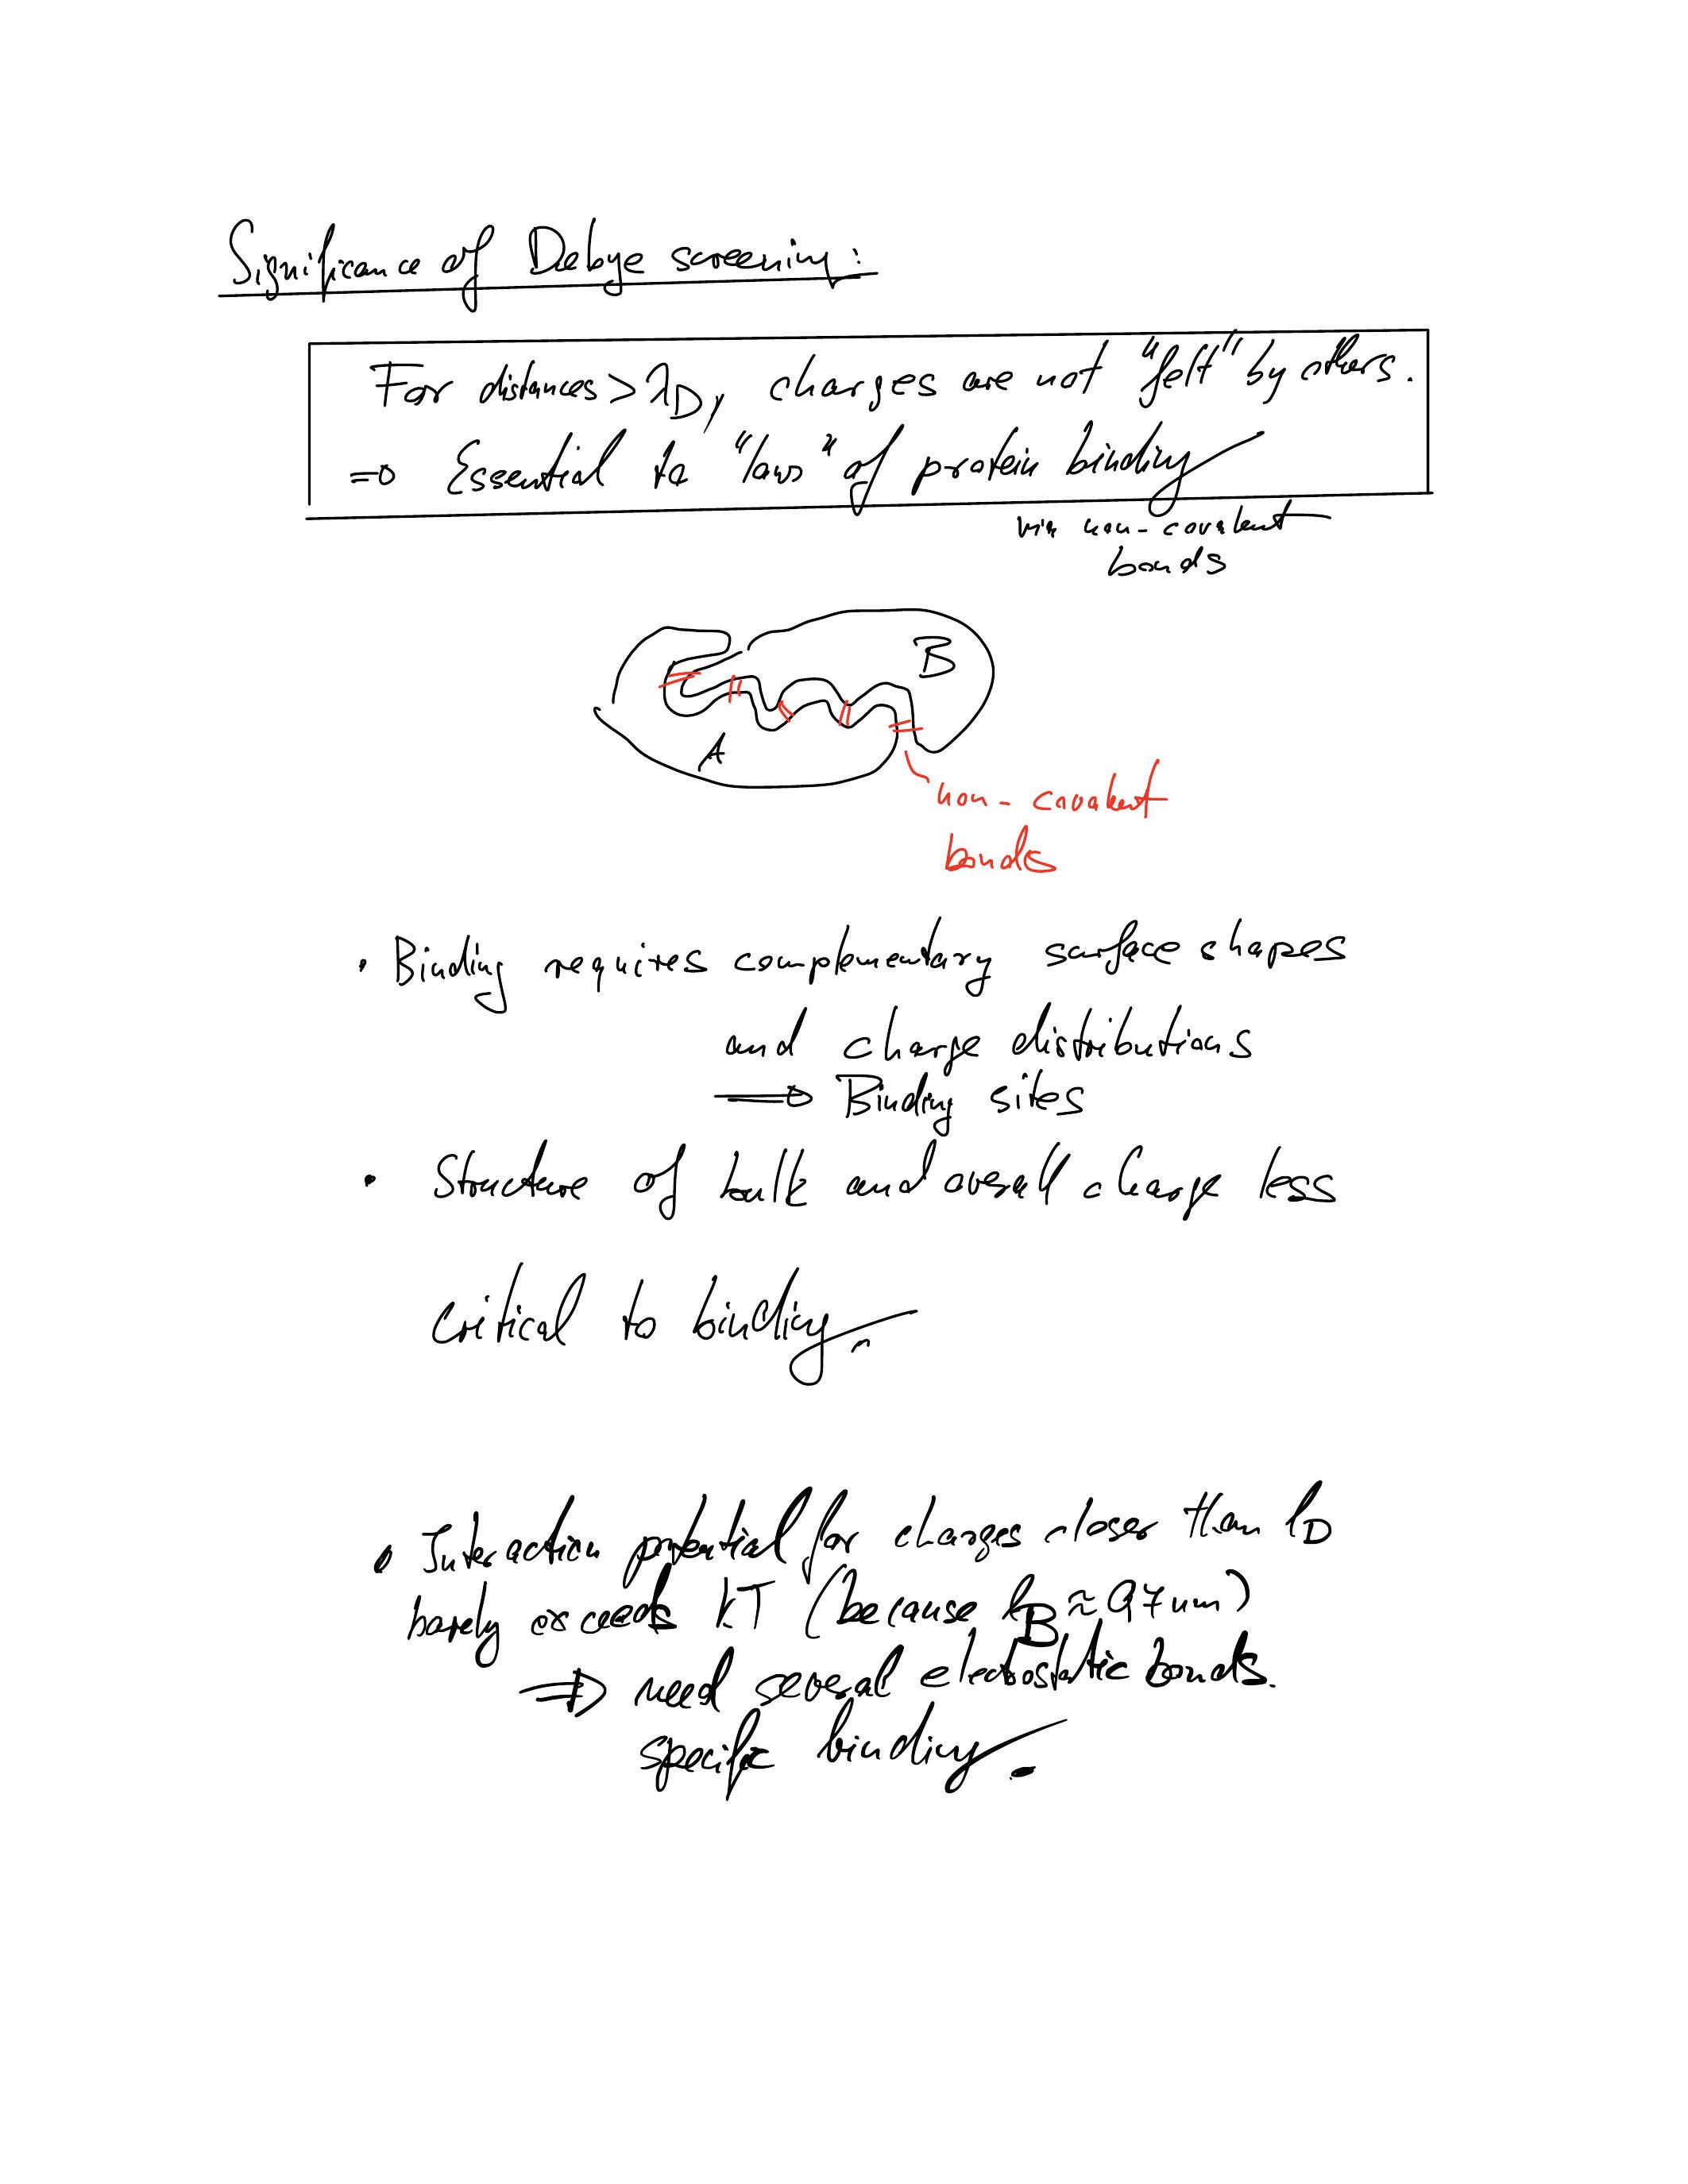 Significance of Debye screening:
For distances > λD, charges are not "felt" by others.
⇒ Essential to "laws" of protein binding
via non-covalent
bonds
B
A
non-covalent
bonds
• Binding requires complementary surface shapes
and charge distributions
⇒ Binding sites
• Structure of bulk and overall charge less
critical to binding.
• Interaction potential for charges closer than lD
barely exceeds kT (because lB ≈ 0,7 nm)
⇒ need several electrostatic bonds.
specific binding.